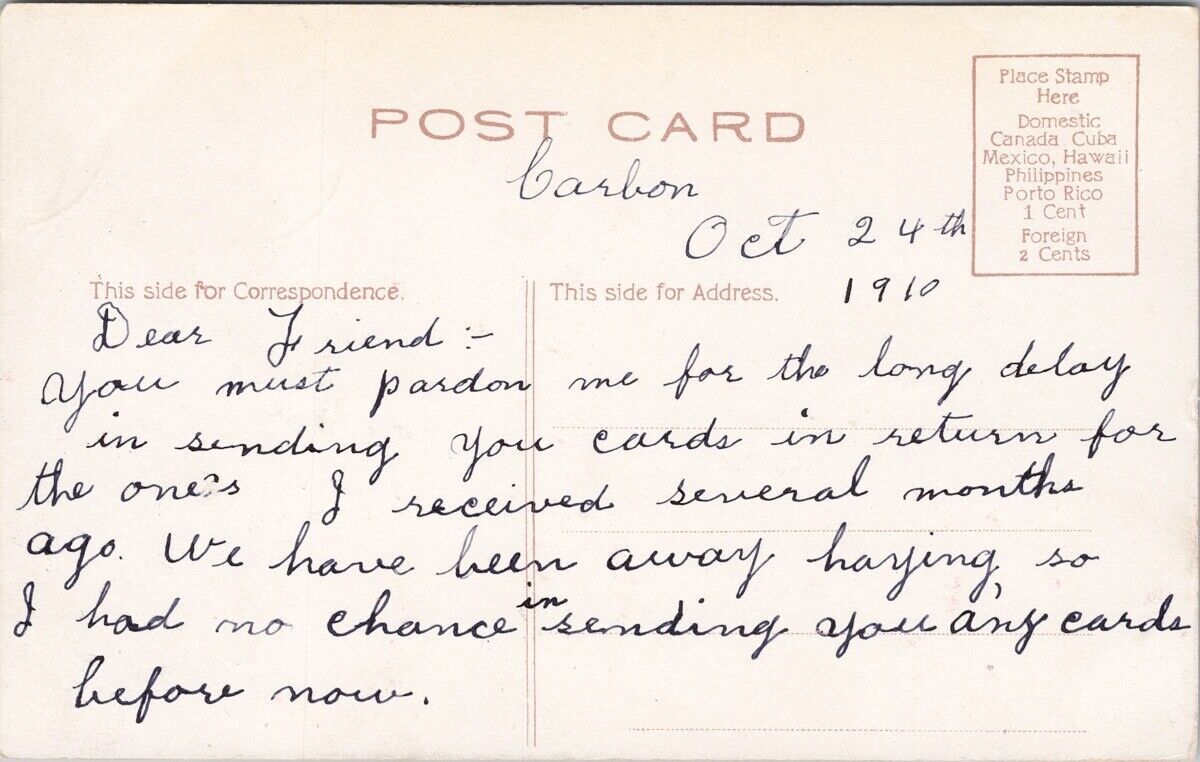 POST CARD
Place Stamp
Here
Domestic
Canada Cuba
Mexico, Hawaii
Philippines
Porto Rico
1 Cent
Foreign
2 Cents
Carbon
Oct 24th
1910
This side for Correspondence.
This side for Address.
Dear Friend :-
You must pardon me for the long delay
in sending you cards in return for
the ones I received several months
ago. We have been away haying so
I had no chance in sending you any cards
before now.